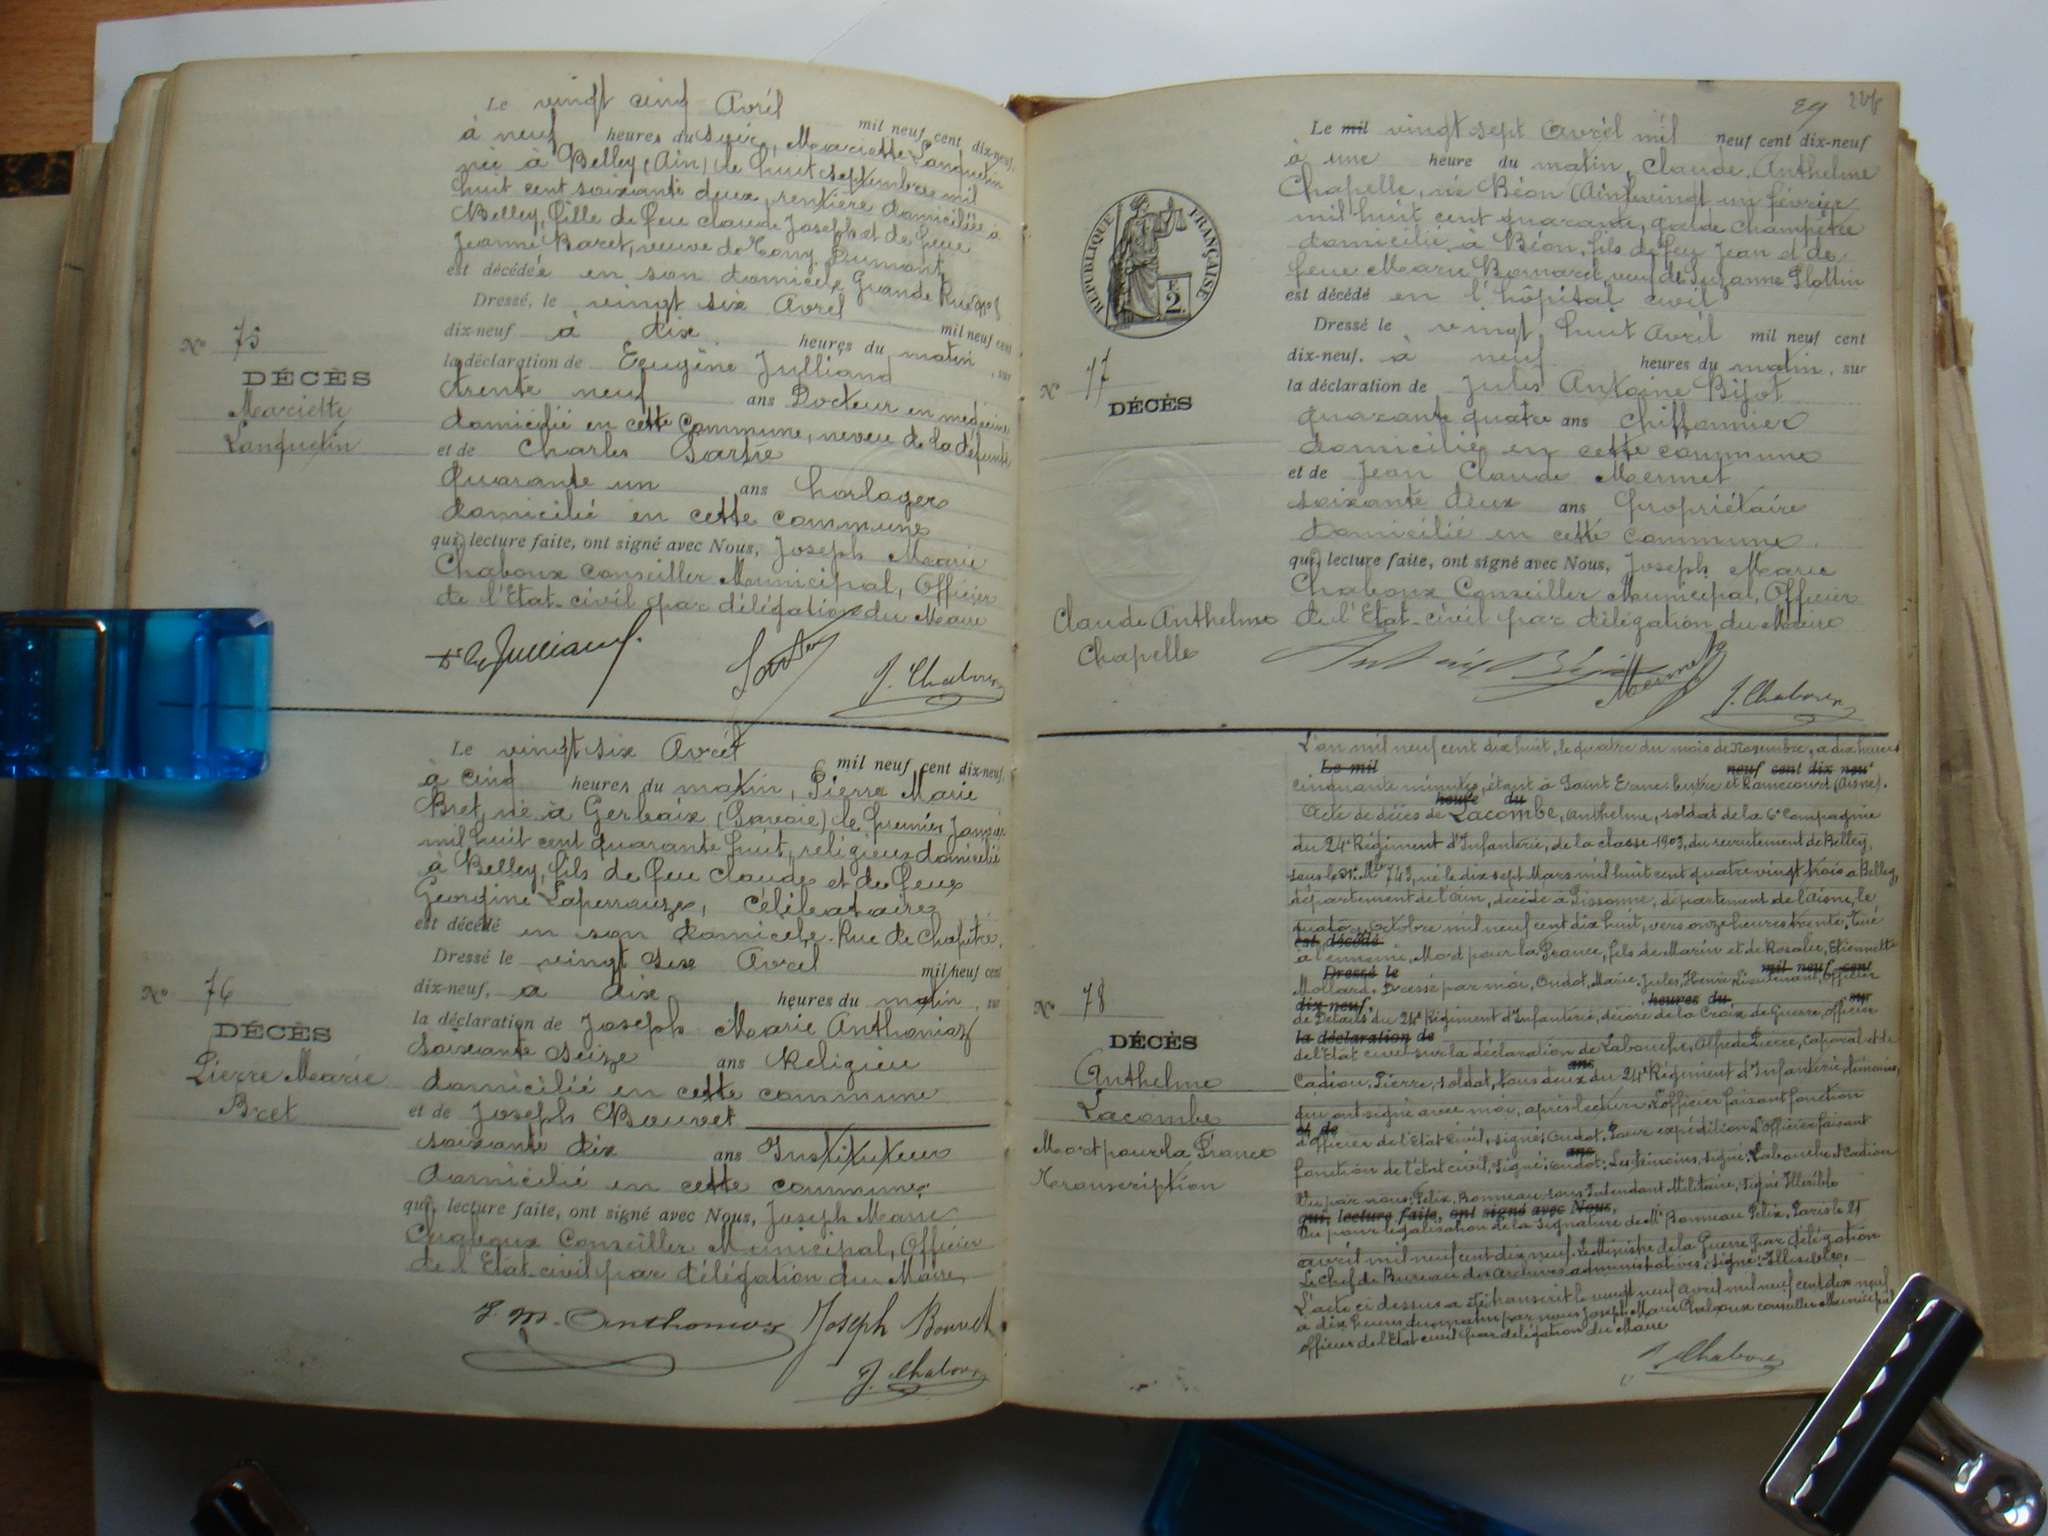 Le vingt cinq Avril mil neuf cent dix-neuf,
à neuf heures du soir, Mariette Lanquetin
née à Belley (Ain) le huit septembre mil
huit cent soixante deux, rentière domiciliée à
Belley, fille de feu Claude Joseph et de feue
Jeanne Baret, veuve de Tony Dumont,
est décédée en son domicile Grande Rue
Dressé, le vingt six Avril mil neuf cent
dix-neuf à dix heures du matin, sur
la déclaration de Eugène Julliand
trente neuf ans Docteur en médecine
domicilié en cette Commune, neveu de la défunte
et de Charles Sartre
quarante un ans horloger
domicilié en cette commune
qui, lecture faite, ont signé avec Nous, Joseph Marie
Chaboux Conseiller Municipal, Officier
de l'Etat-civil par délégation du Maire
J. Chaboux
N° 75
DÉCÈS
Mariette
Lanquetin
Le vingt six Avril mil neuf cent dix-neuf,
à cinq heures du matin, Pierre Marie
Bret, né à Gerbaix (Savoie) le premier janvier
mil huit cent quarante huit, religieux domicilié
à Belley, fils de feu Claude et de feue
Georgine Laperrouze, célibataire
est décédé en son domicile. Rue de Chapitre,
Dressé le vingt six Avril mil neuf cent
dix-neuf, à dix heures du matin, sur
la déclaration de Joseph Marie Anthonioz
soixante seize ans Religieux
domicilié en cette commune
et de Joseph Bouvet
soixante dix ans Instituteur
domicilié en cette commune
qui, lecture faite, ont signé avec Nous, Joseph Marie
Chaboux Conseiller Municipal, Officier
de l'Etat-civil par délégation du Maire
J. M. Anthonioz Joseph Bouvet
J. Chaboux
N° 76
DÉCÈS
Pierre Marie
Bret
29
Le mil vingt sept Avril mil neuf cent dix-neuf
à une heure du matin, Claude Anthelme
Chapelle, né Béon (Ain) le vingt un février
mil huit cent quarante, garde champêtre
domicilié à Béon, fils de feu Jean et de
feue Marie Bornard, veuf de Suzanne Flottin
est décédé en l'hôpital civil
Dressé le vingt huit Avril mil neuf cent
dix-neuf. à neuf heures du matin, sur
la déclaration de Jules Antoine Bijot
quarante quatre ans chiffonnier
domicilié en cette commune
et de Jean Claude Mermet
soixante deux ans Propriétaire
domicilié en cette commune
qui, lecture faite, ont signé avec Nous, Joseph Marie
Chaboux Conseiller Municipal, Officier
de l'Etat-civil par délégation du Maire
Mermet
J. Chaboux
RÉPUBLIQUE FRANÇAISE
2
N° 77
DÉCÈS
Claude Anthelme
Chapelle
L'an mil neuf cent dix huit, le quatre du mois de Novembre, à dix heures
Le mil neuf cent dix neuf
cinquante minutes, étant à Saint Erme, Outre et Ramecourt (Aisne).
heure du
Acte de décès de Lacombe, Anthelme, soldat de la 6e Compagnie
du 24e Régiment d'Infanterie, de la classe 1903, du recrutement de Belley,
sous le N° Mle 743, né le dix sept Mars mil huit cent quatre vingt trois à Belley,
département de l'Ain, décédé à Sissonne, département de l'Aisne, le
Octobre mil neuf cent dix huit, vers onze heures trente, Tué
est décédé
à l'ennemi, Mort pour la France, fils de Marin et de Rosalie, Etiennette
Dressé le mil neuf cent
Mollard, Dressé par moi, Oudot, Marie, Jules, Henri, Lieutenant, Officier
dix neuf, heures du sur
de Détails du 24e Régiment d'Infanterie, décoré de la Croix de Guerre, officier
la déclaration de
de l'Etat civil sur la déclaration de Labouche, Alfred Pierre, caporal et de
ans
Cadiou, Pierre, soldat, tous deux du 24e Régiment d'Infanterie, témoins,
qui ont signé avec moi, après lecture. L'officier faisant fonction
et de
d'Officier de l'Etat Civil, signé: Oudot. Pour expédition L'Officier faisant
ans
fonction de l'état civil, signé: Oudot: Les témoins, signé: Labouche et Cadiou
Vu par nous: Félix Bonneau sous Intendant Militaire, signé Illisible
qui, lecture faite, ont signé avec Nous,
Vu pour légalisation de la signature de Mr Bonneau Félix, Paris le 21
avril mil neuf cent dix neuf. Le Ministre de la Guerre par délégation
Le Chef du Bureau des Archives administratives, signé: Illisible,
L'acte ci dessus a été transcrit le vingt neuf Avril mil neuf cent dix neuf
à dix heures du matin par nous Joseph Marie Chaboux conseiller Municipal
officier de l'Etat civil par délégation du Maire
J. Chaboux
N° 78
DÉCÈS
Anthelme
Lacombe
Mort pour la France
Transcription